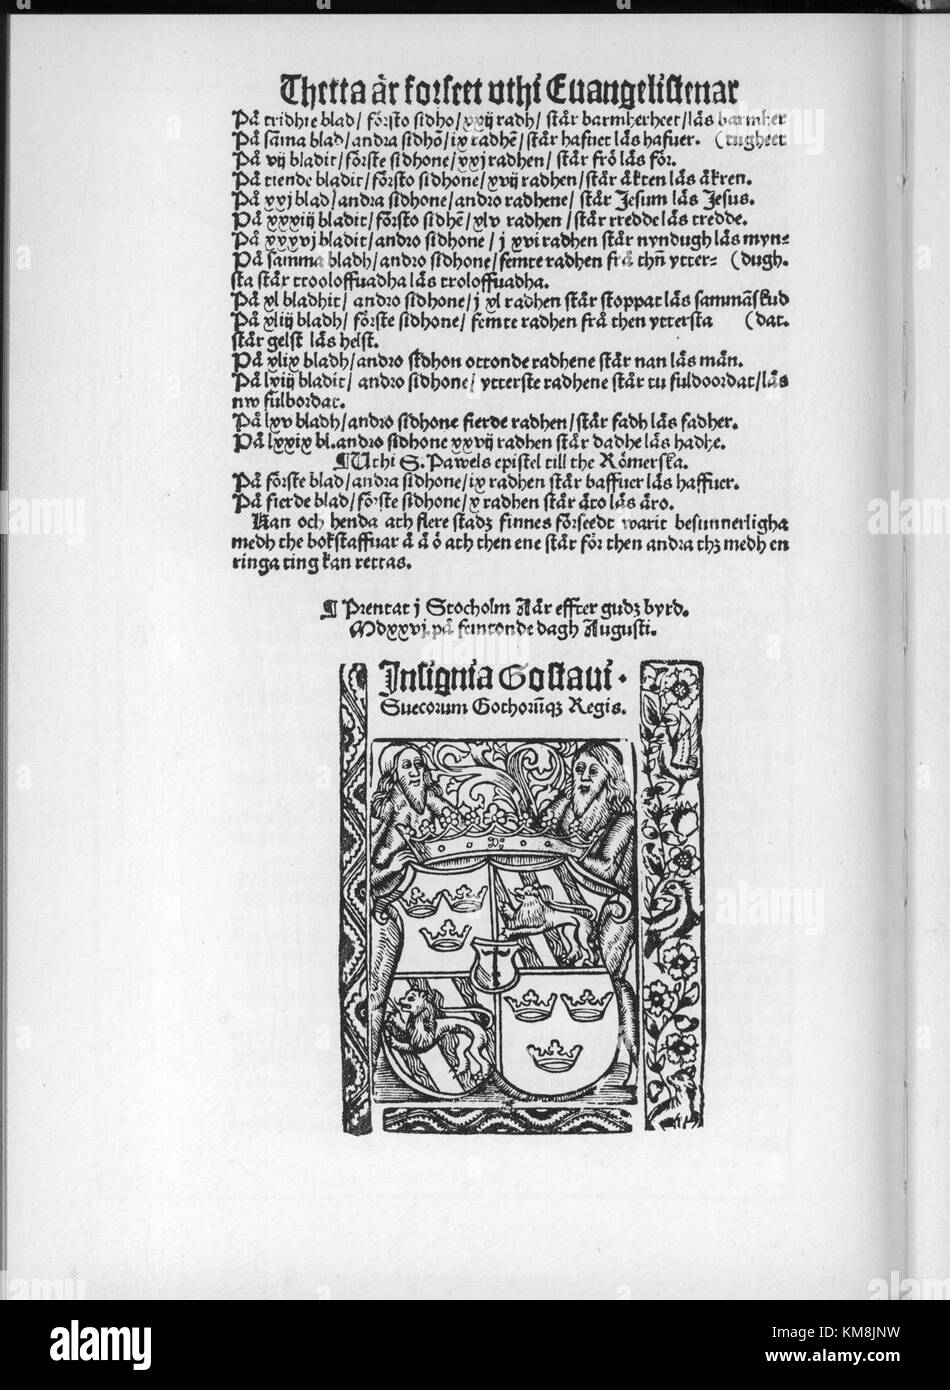 Thetta är forseet vthi Euangelistenar
På tridhie blad/ försto sidho/ xxij radh/ står barmherheet/läs barmher
På sāma blad/ andra sidhō/ ix radhē/ står hafuet läs hafuer. (tugheet
På vij bladit/ förste sidhone/ xxj radhen/ står frö läs för.
På tiende bladit/försto sidhone/ xvij radhen/ står åkten läs åkren.
På xxj blad/ andra sidhone/ andro radhene/ står Jesum läs Jesus.
På xxxiij bladit/ försto sidhē/ xlv radhen /står rredde läs tredde.
På xxxvj bladit/ andro sidhone / j xvi radhen står nyndugh läs myn=
På samma bladh/ andro sidhone/ femte radhen frå thñ ytter= (dugh.
sta står trooloffuadha läs troloffuadha.
På xl bladhit/ andro sidhone/ j xl radhen står stoppat läs sammāskud
På xliij bladh/ förste sidhone/ femte radhen frå then yttersta (dat.
står gelst läs helst.
På xlix bladh/andro sidhon ottonde radhene står nan läs män.
På lxiij bladit/ andro sidhone/ ytterste radhene står tu fuldoordat/läs
nw fulbordat.
På lxv bladh/andro sidhone fierde radhen/står fadh läs fadher.
På lxxix bl.andro sidhone xxvij radhen står dadhe läs hadhe.
¶Vthi S. Pawels epistel till the Römerska.
På förste blad/ andra sidhone/ix radhen står baffuer läs haffuer.
På fierde blad/ förste sidhone/x radhen står åro läs äro.
Kan och henda ath flere stadz finnes förseedt warit besunnerligha
medh the bokstaffuar å ä ö ath then ene står för then andra thz medh en
ringa ting kan rettas.
¶ Prentat j Stocholm Aår effter gudz byrd.
Mdxxvj. på femtonde dagh Augusti.
Insignia Gostaui ·
Suecorum Gothorūqz Regis.
alamy
Image ID: KM8JNW
www.alamy.com